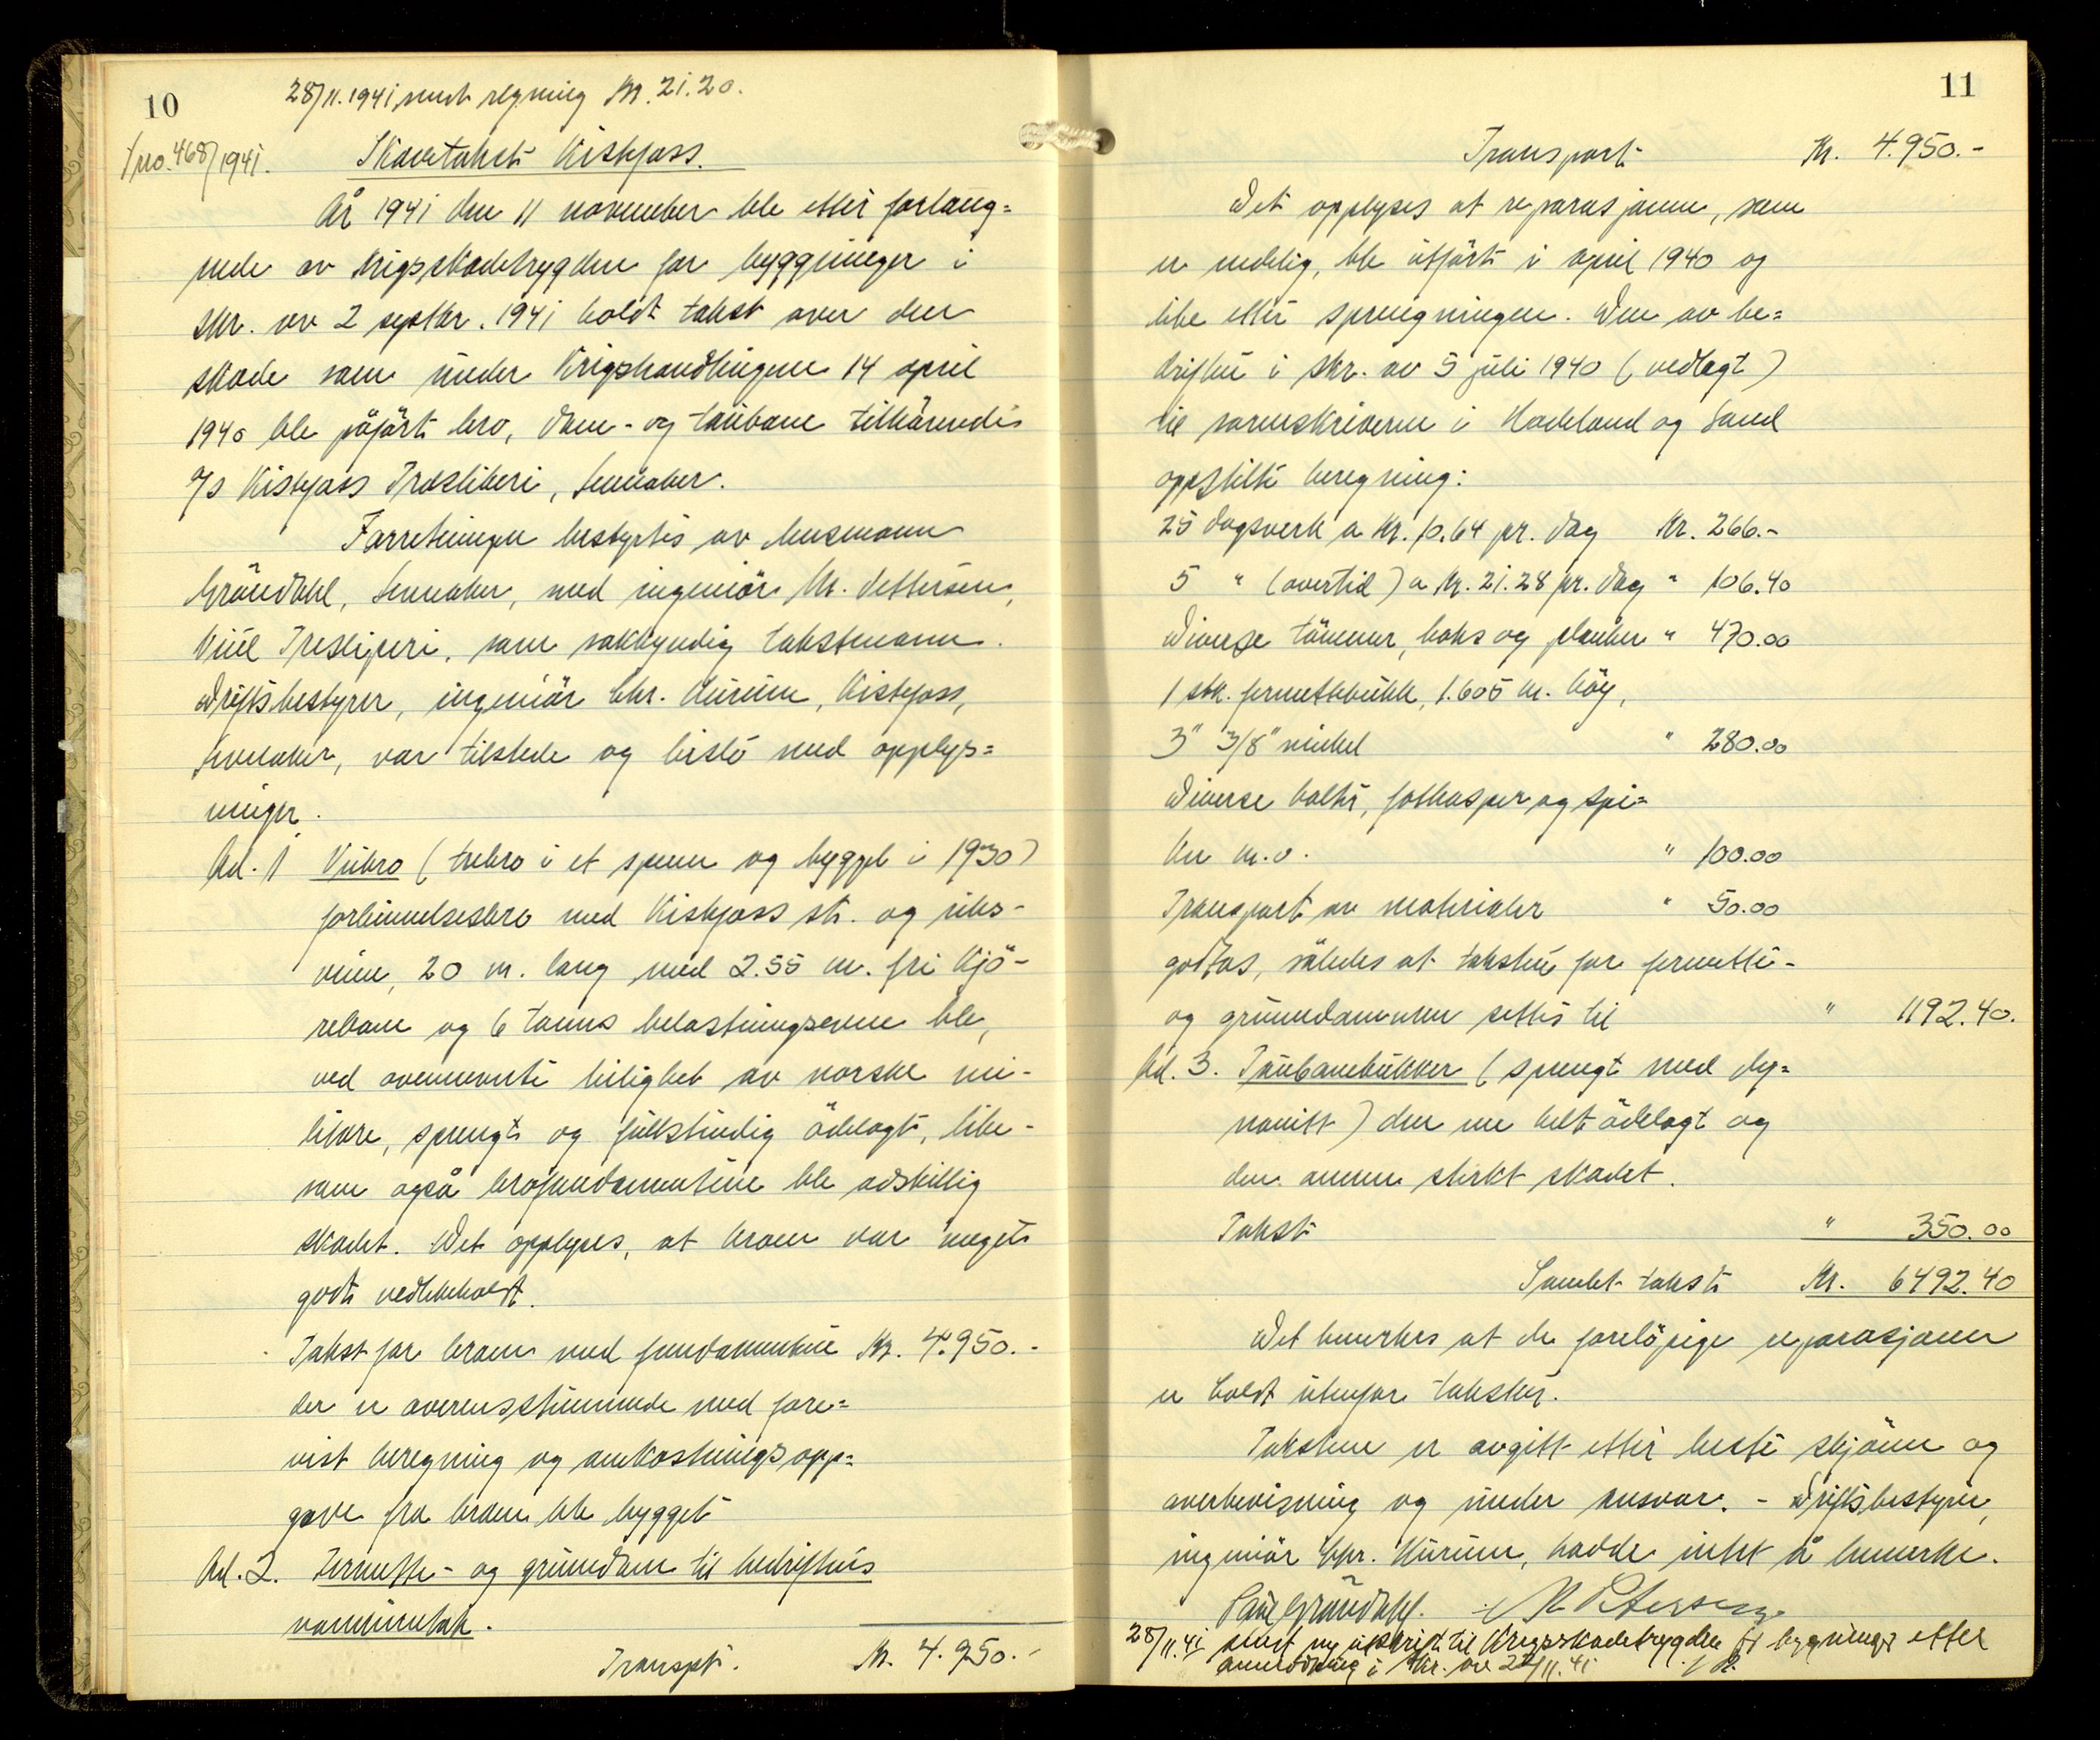 10
28/11.1941 sendt regning Kr. 21.20.
Jno. 468/1941.
Skadetakst Kistefoss.
År 1941 den 11 november ble etter forlang=
ende av Krigsskadetrygden for bygginger i
skr. av 2 septbr. 1941 holdt takst over den
skade som under Krigshandlingene 14 april
1940 ble påført bro, dam- og taubane tilhørende
A/s Kistefoss Træsliberi, Jevnaker.
Forretningen bestyrtes av lensmann
Gröndahl, Jevnaker, med ingeniör Kr. Pettersen,
Viul Tresliperi, som sakkyndig takstmann.
Driftsbestyrer, ingeniör Chr. Kurüm, Kistefoss,
Jevnaker, var tilstede og bisto med opplys=
ninger.
Ad. 1 Veibro (trebro i et spenn og bygget i 1930)
forbinnelsesbro med Kistefoss st. og riks-
veien, 20 m. lang med 2.55 m. fri kjö-
rebane og 6 tonns belastningsevne ble,
ved ovennevnte leilighet av norske mi-
litære, sprengt og fullstendig ödelagt, like-
som også brofundamentene ble adskillig
skadet. Det opplyses, at broen var meget
godt vedlikeholdt.
Takst for broen med fundamentene Kr. 4.950.-
der er overensstemmende med fore=
vist beregning og omkostningsopp=
gave fra broen ble bygget
Ad. 2. Jernette- og grunndam til bedriftens
vanninntak.
Transpt. Kr. 4.950.-
11
Transport Kr. 4.950.-
Det opplyses at reparasjonen, som
er nødig, ble utfört i april 1940 og
like etter sprengningen. Den av be=
driften i skr. av 5 juli 1940 (vedlagt)
til sorenskriveren i Hadeland og Land
oppstilte beregning:
25 dagsverk a Kr. 10.64 pr. dag Kr. 266.-
5 " (overtid) a Kr. 21.28 pr. dag " 106.40
Diverse tömmer, boks og planker " 470.00
1 stk. fermettbukk, 1.605 m. höy,
3" 3/8" vinkel " 280.00
Diverse bolter, fothasper og spi=
ker m.v. " 100.00
Transport av materialer " 50.00
godtas, således at taksten for fermette-
og grunndammen settes til " 1192.40.
Ad. 3. Taubanebukker (sprengt med dy=
namitt) den ene helt ödelagt og
den annen sterkt skadet.
Takst " 350.00
Samlet takst Kr. 6492.40
Det bemerkes at de forelöpige reparasjoner
er holdt utenfor taksten.
Taksten er avgitt etter beste skjönn og
overbevisning og under ansvar. - Driftsbestyrer,
ingeniör Chr. Kurüm, hadde intet å bemerke.
Paul Gröndahl. Kr Pettersen
28/11.41 sendt ny utskrift til Krigsskadetrygden for bygninger etter
anmodning i skr. av 22/11.41